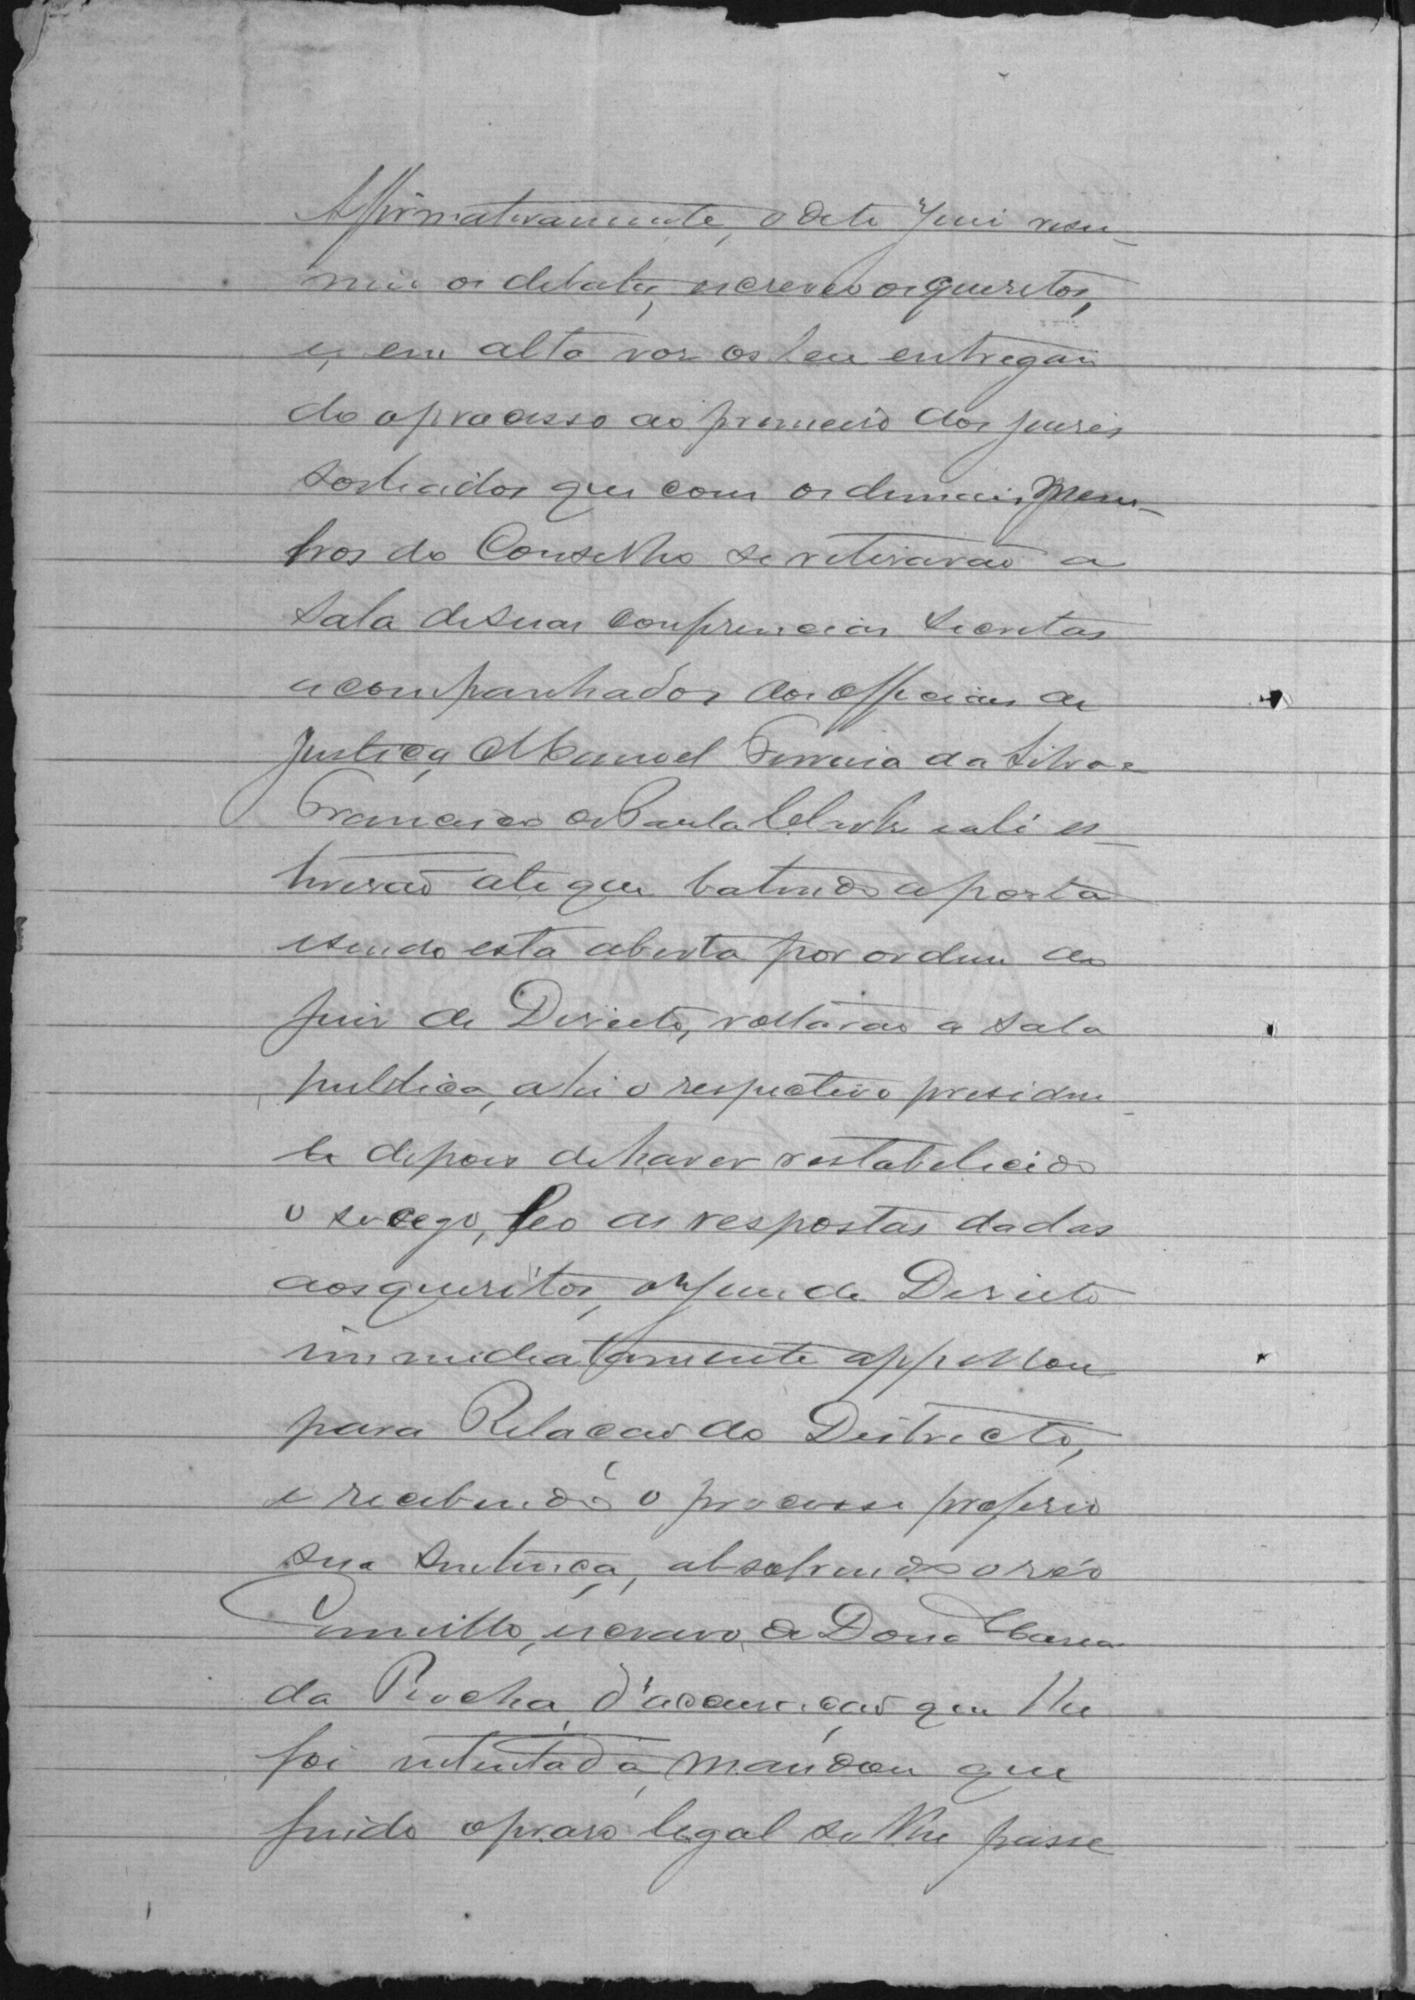 Affirmativamente, o dito Juiz resu-
miu os debates, escreveo os quesitos,
e, em alta voz os leu entregan
do o processo ao primeiro dos juizes
sorteados que com os demais Mem-
bros do Conselho se retirarão a
sala de suas conferencias secretas
acompanhados dos officiaes de
Justiça Manoel Ferreira da Silva e
Francisco de Paula e ali es-
tiverão ate que batendo a porta
e sendo esta aberta por ordem do
Juiz de Direito, voltarão a sala
publica, ahi o respectivo presiden-
te depois de haver restabelecido
o socego, leo as respostas dadas
aos quesitos, o Juiz de Direito
immediatamente appellou
para Relação do Districto,
e recebendo o processo proferio
sua sentença, absolvendo o réo
escravo de Dona Maria
da Rocha, d'accusação que lhe
foi intentada, mandou que
findo o praso legal se lhe passe